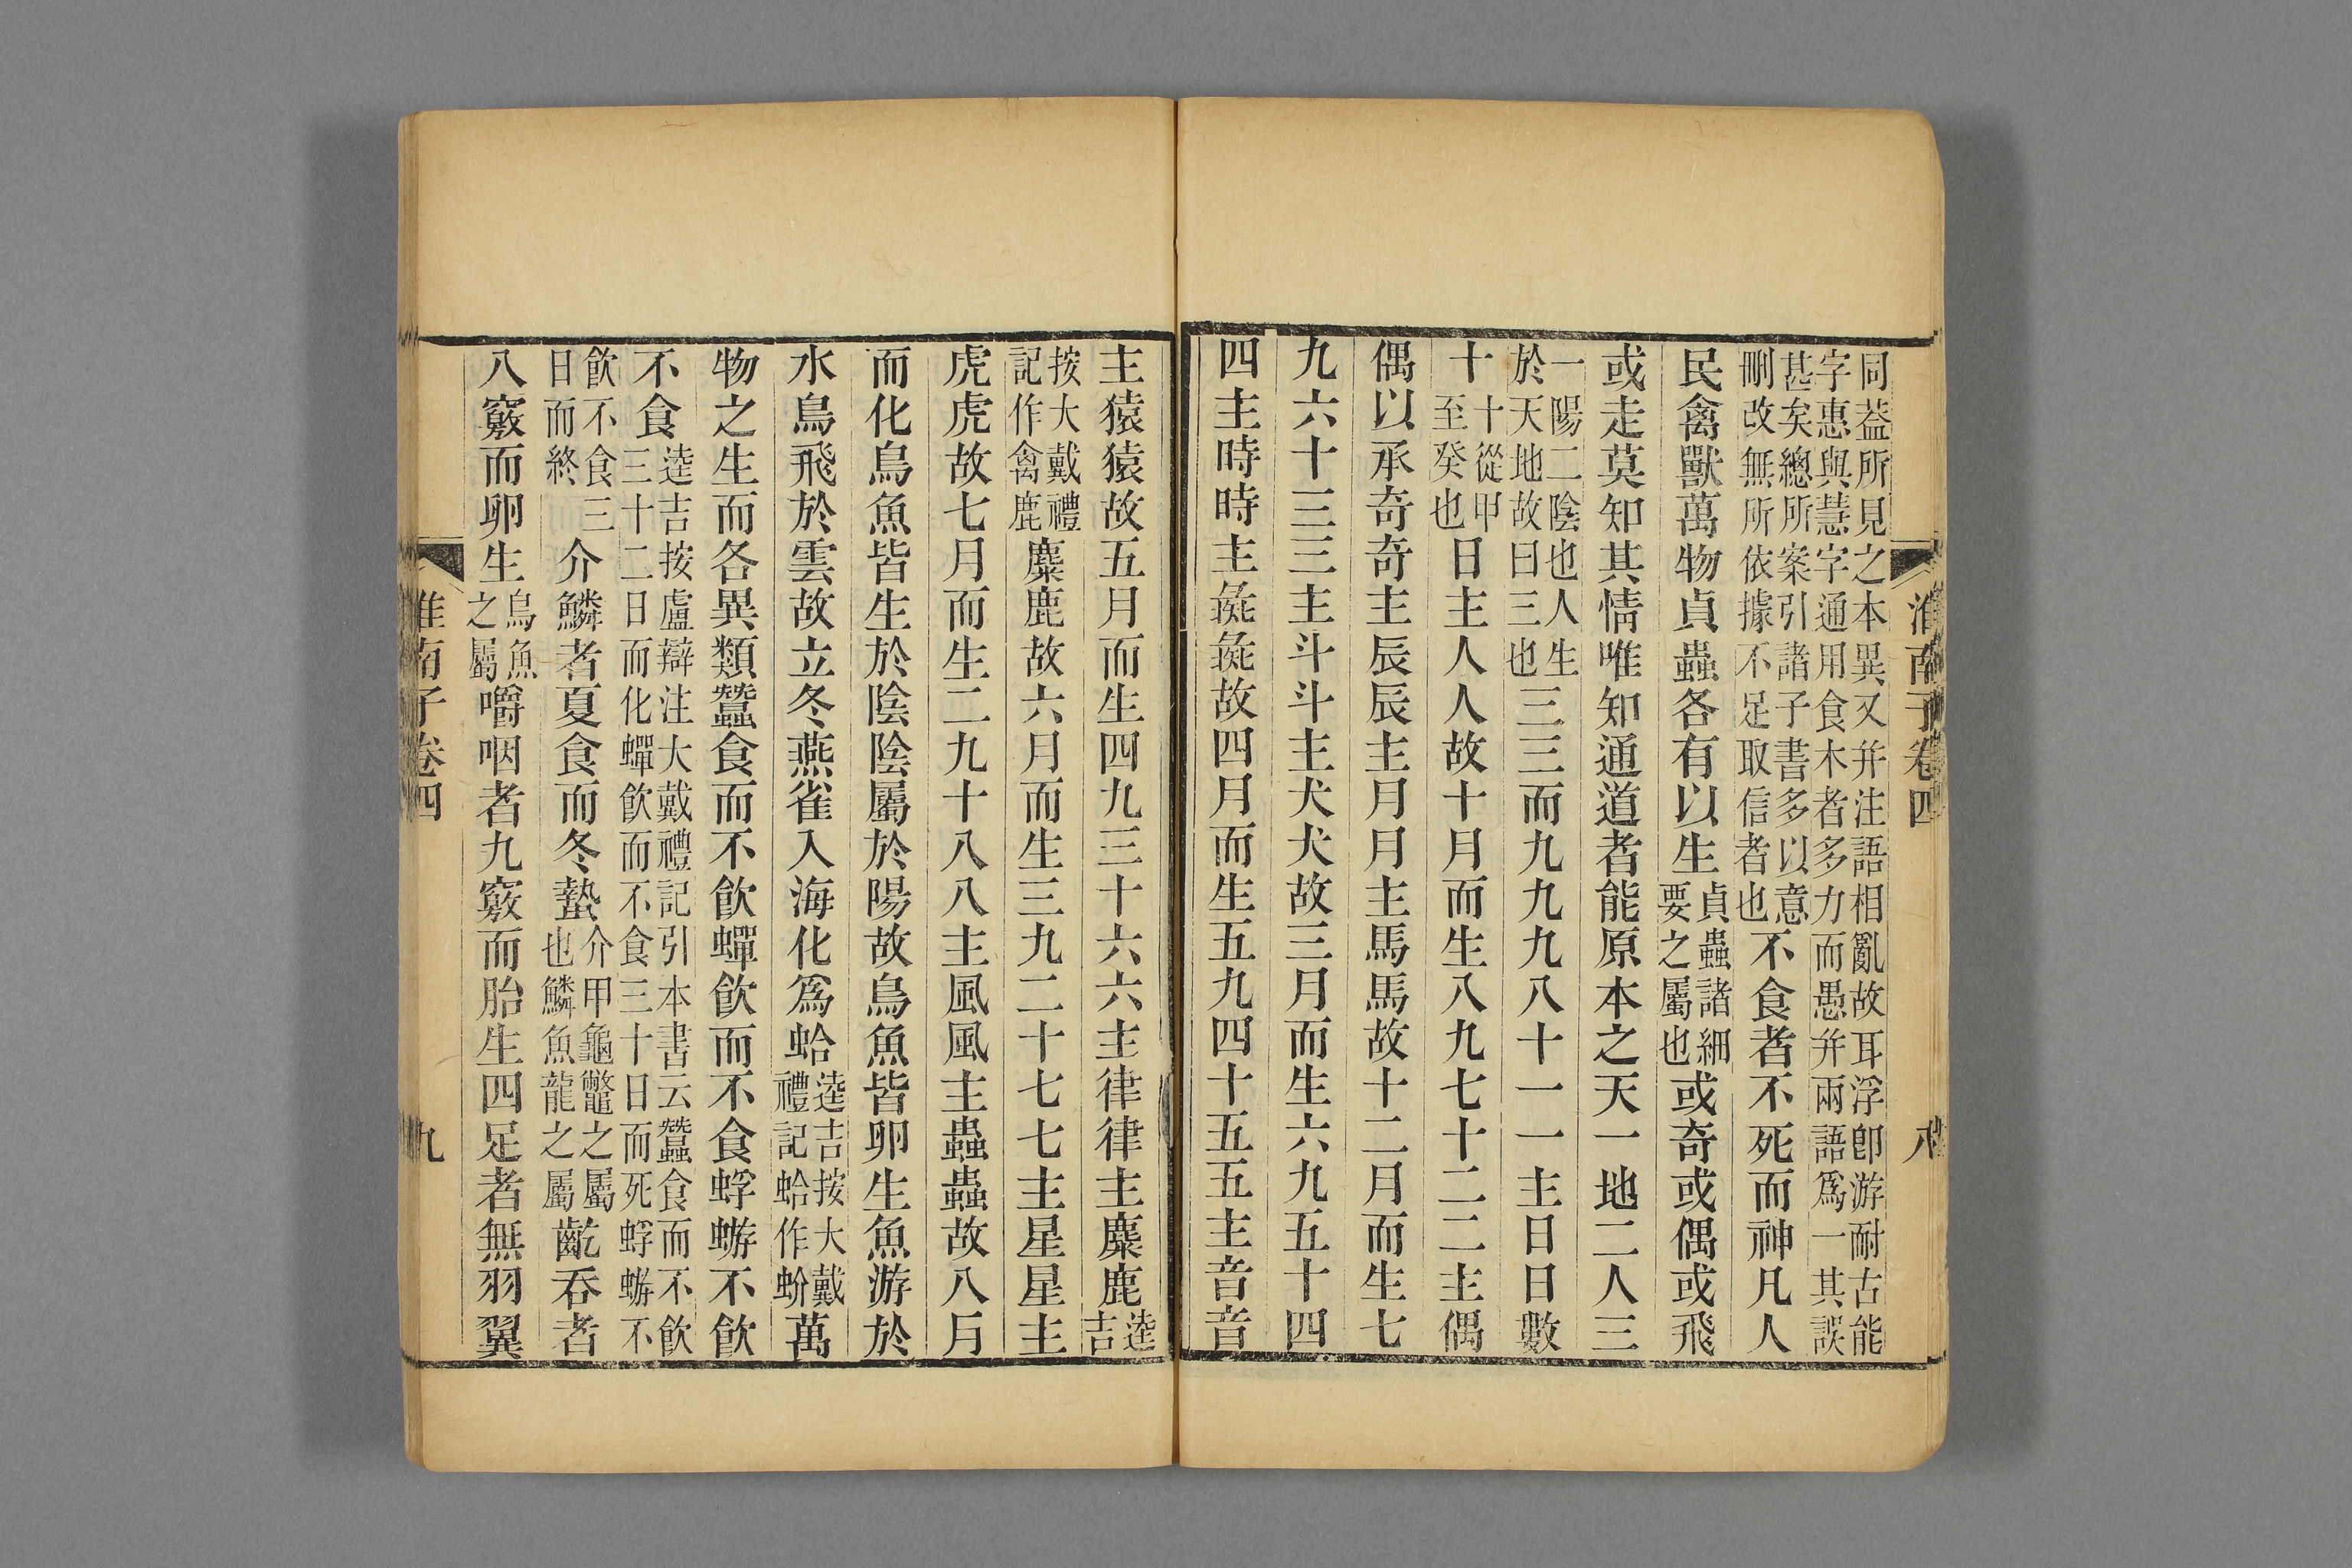 淮南子卷四　八
同葢所見之本異又幷注語相亂故耳浮卽游耐古能
字惠與慧字通用食木者多力而愚幷兩語爲一其誤
甚矣總所案引諸子書多以意刪改無所依據不足取信者也不食者不死而神凡人
民禽獸萬物貞蟲各有以生貞蟲諸細要之屬也或奇或偶或飛
或走莫知其情唯知通道者能原本之天一地二人三
一陽二陰也人生於天地故曰三也三三而九九九八十一一主日日數
十十從甲至癸也日主人人故十月而生八九七十二二主偶
偶以承奇奇主辰辰主月月主馬馬故十二月而生七
九六十三三主斗斗主犬犬故三月而生六九五十四
四主時時主彘彘故四月而生五九四十五五主音音
主猿猿故五月而生四九三十六六主律律主麋鹿逵吉
按大戴禮記作禽鹿麋鹿故六月而生三九二十七七主星星主
虎虎故七月而生二九十八八主風風主蟲蟲故八月
而化鳥魚皆生於陰陰屬於陽故鳥魚皆卵生魚游於
水鳥飛於雲故立冬燕雀入海化爲蛤逵吉按大戴禮記蛤作蚡萬
物之生而各異類蠶食而不飮蟬飮而不食蜉蝣不飮
不食逵吉按盧辯注大戴禮記引本書云蠶食而不飮三十二日而化蟬飮而不食三十日而死蜉蝣不
飮不食三日而終介鱗者夏食而冬蟄介甲龜鼈之屬也鱗魚龍之屬齕吞者
八竅而卵生鳥魚之屬嚼咽者九竅而胎生四足者無羽翼
淮南子卷四　九